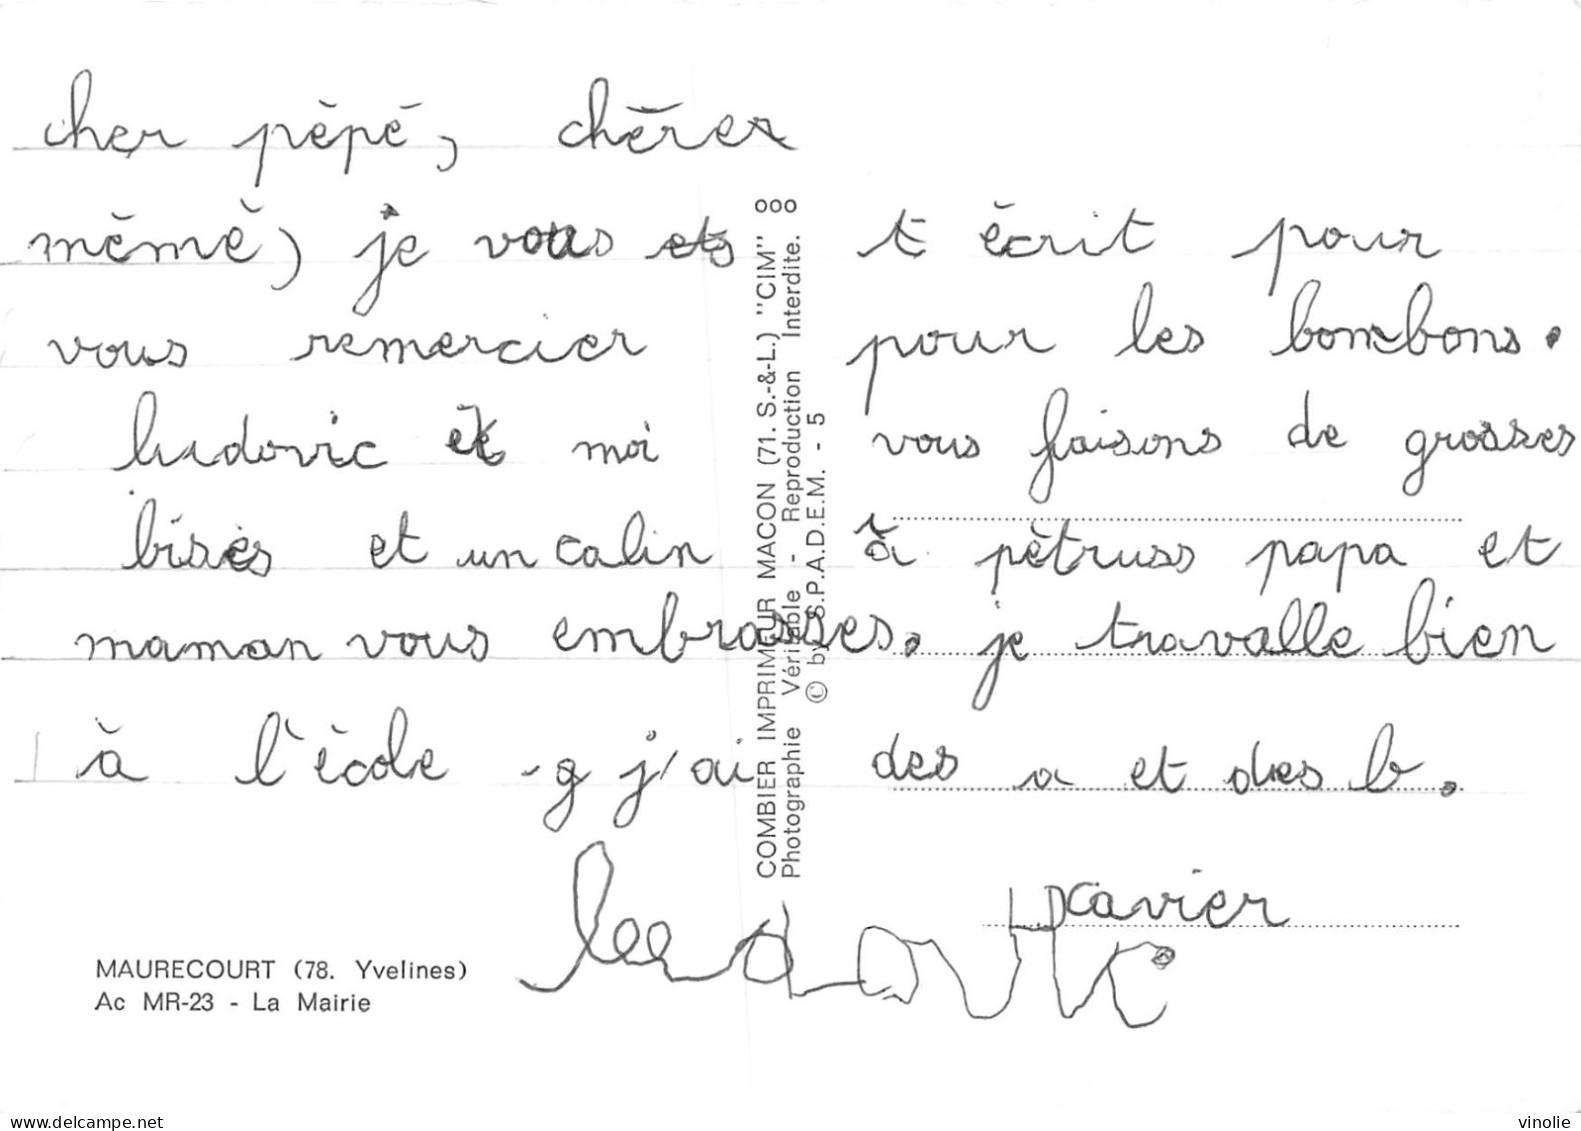 cher pépé, chères
mémé, je vous ets t écrit pour
vous remercier pour les bombons.
ludovic et moi vous faisons de grosses
bises et un calin à pètruss papa et
maman vous embrasses. je travalle bien
à l'école g j'ai des a et des b.
xavier
ludovic
MAURECOURT (78. Yvelines)
Ac MR-23 - La Mairie
COMBIER IMPRIMEUR MACON (71. S.-&-L.) "CIM" ooo
Photographie Véritable - Reproduction Interdite.
© by S.P.A.D.E.M. - 5
delcampe.net
vinolie